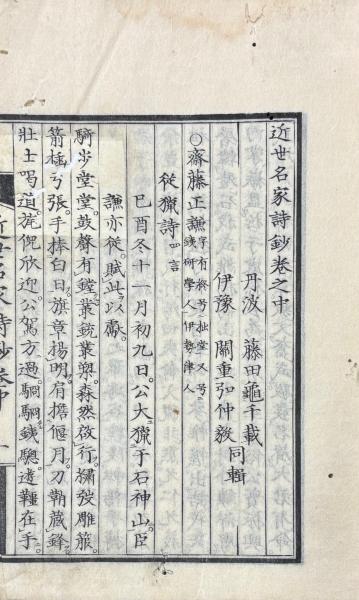 近世名家詩鈔卷之中
丹波　藤田龜千載
伊豫　關重弘仲毅同輯
○齋藤正謙字有終号拙堂又号鐵研學人伊勢津人
從獵詩四言
己酉冬十一月初九日。公大獵于石神山。臣
謙亦從。賦此以獻。
騎步堂堂。鼓聲有鏜。叢銃叢槊。森然啟行。橐弢雕箙。
箭插弓張。手捧白日。旗章揚明。肩擔偃月。刀鞘藏鋒。
壯士喝道。旄倪欣迎。公駕方過。駉駉鐵驄。遊韁在手。
近世名家詩鈔卷中　一